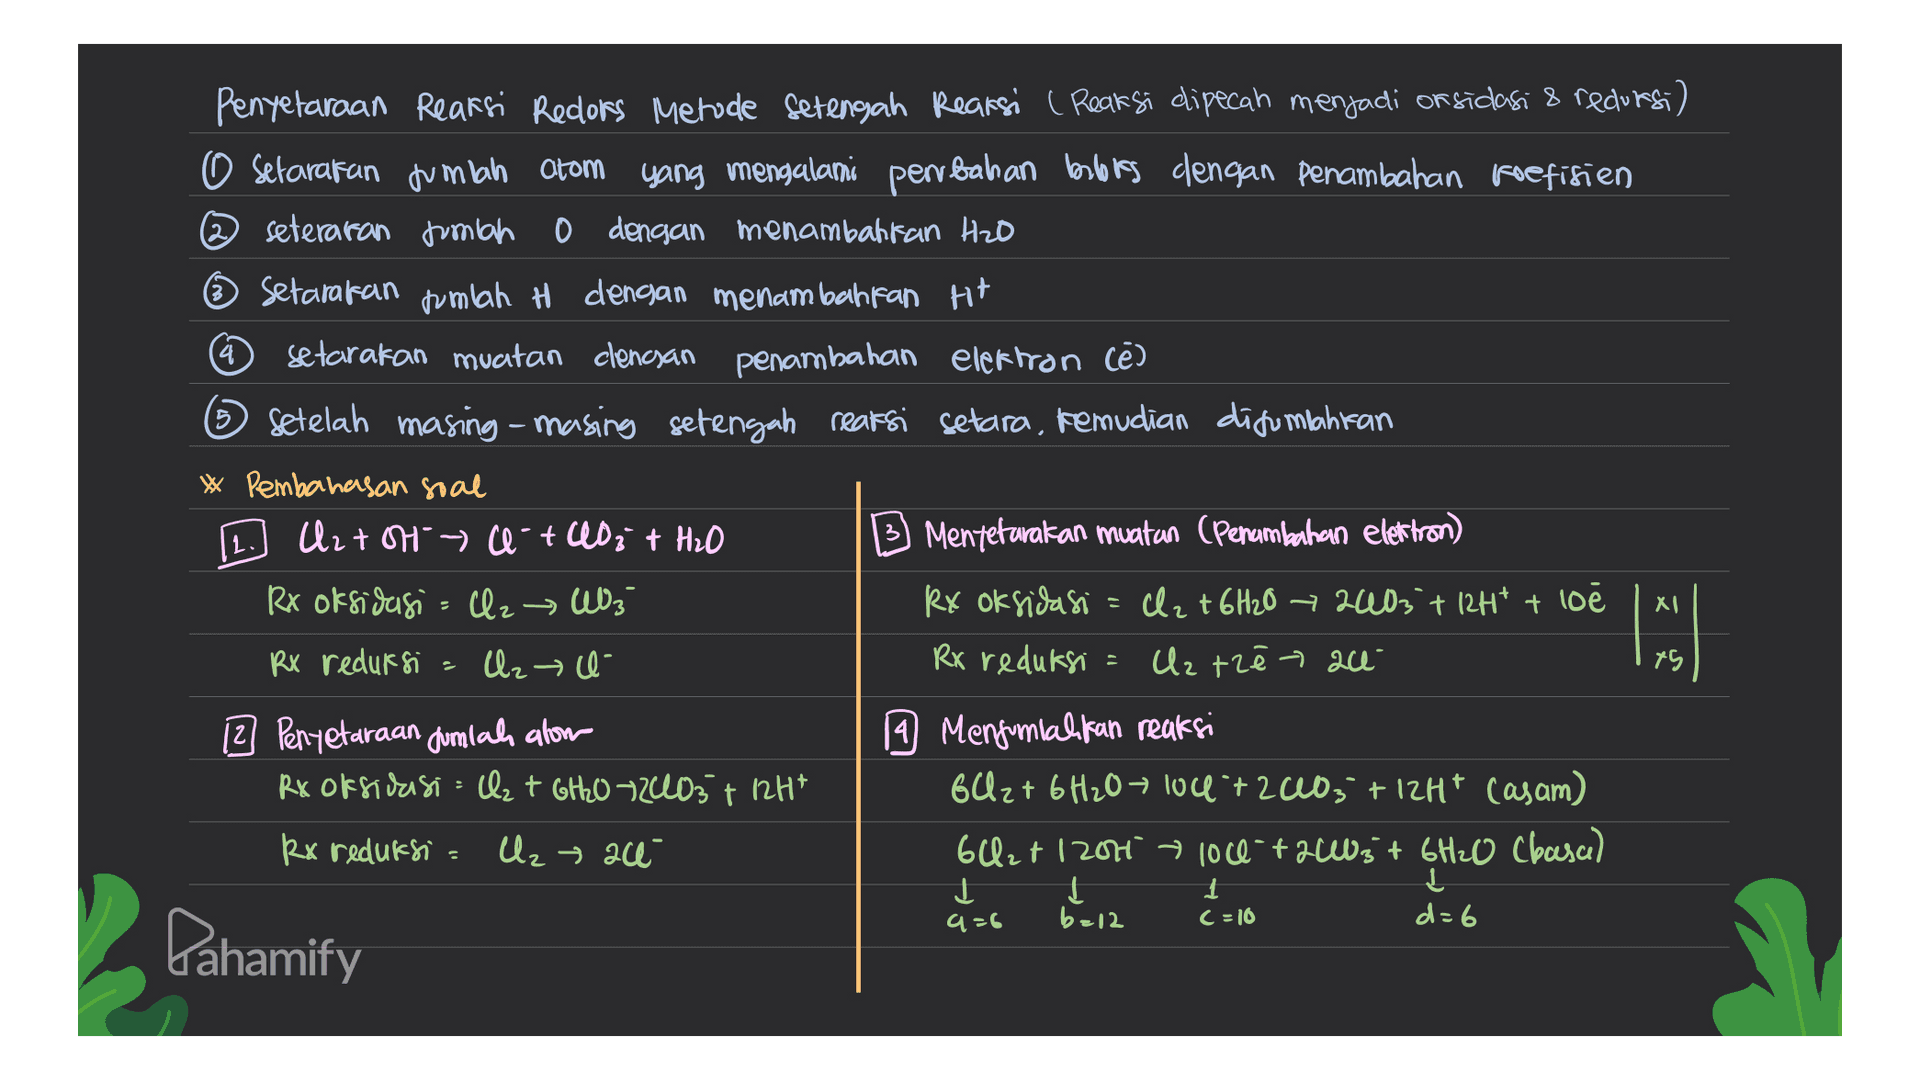 Penyetaraan Reaksi Redoks Metode Setengah Reaksi (Reaksi dipecah menjadi oksidasi & reduksi)
① Setarakan jumlah atom yang mengalami perubahan biloks dengan penambahan koefisien
② seterakan jumlah O dengan menambahkan H₂O
③ Setarakan jumlah H dengan menambahkan H⁺
④ setarakan muatan dengan penambahan elektron (ē)
⑤ Setelah masing-masing setengah reaksi setara, kemudian dijumlahkan
※ Pembahasan soal
1. Cl₂ + OH⁻ → Cl⁻ + ClO₃⁻ + H₂O
Rx oksidasi = Cl₂ → ClO₃⁻
Rx reduksi = Cl₂ → Cl⁻
2 Penyetaraan jumlah atom
Rx oksidasi = Cl₂ + 6H₂O → 2ClO₃⁻ + 12H⁺
Rx reduksi = Cl₂ → 2Cl⁻
3 Menyetarakan muatan (Penambahan elektron)
Rx oksidasi = Cl₂ + 6H₂O → 2ClO₃⁻ + 12H⁺ + 10ē | x1 |
Rx reduksi = Cl₂ + 2ē → 2Cl⁻ | x5 |
4 Menjumlahkan reaksi
6Cl₂ + 6H₂O → 10Cl⁻ + 2ClO₃⁻ + 12H⁺ (asam)
6Cl₂ + 12OH⁻ → 10Cl⁻ + 2ClO₃⁻ + 6H₂O (basa)
↓ ↓ ↓ ↓
a=6 b=12 c=10 d=6
Pahamify